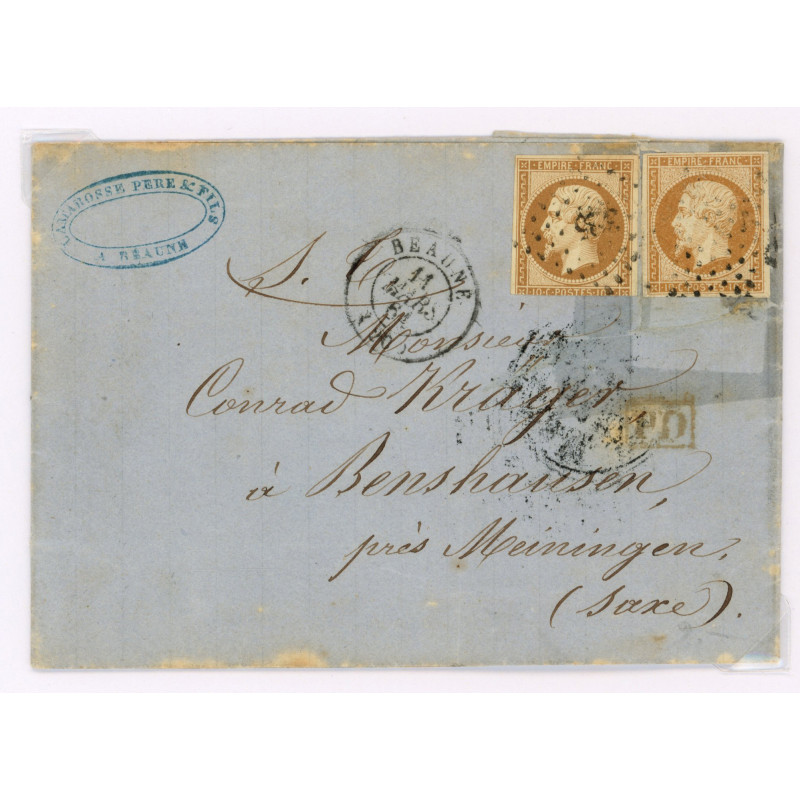 LAMAROSSE PERE & FILS
A BEAUNE
EMPIRE FRANC
10 C POSTES 10 C
EMPIRE FRANC
BEAUNE
11
MARS
Monsieur
Conrad Krayer,
PD
à Benshausen,
près Meiningen,
(Saxe).